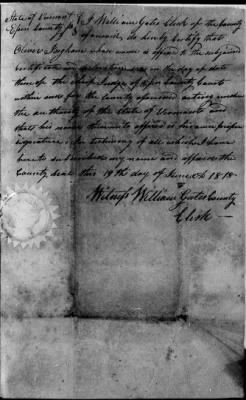 State of Vermont } I William Gates Clerk of the County
Essex County ss } aforesaid, do hereby certify that
Oliver Ingham whose name is affixed to the subjoined
certificate and was on the day and date
thereof the chief Judge of Essex County Court
within and for the County aforesaid acting under
the authority of the State of Vermont and
that his name thereunto affixed is his own proper
signature, In testimony of all which I have
hereto subscribed my name and affixed the
County seal this 19th day of June AD 1818
Witness William Gates County
Clerk